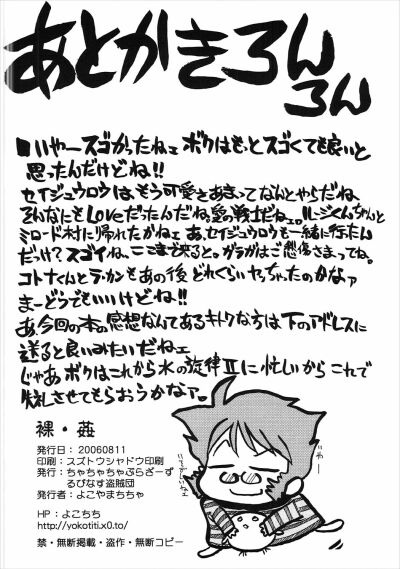 あとがきろん
ろん
いやースゴかったねェ ボクはもっとスゴくても良いと
思ったんだけどね!!
セイジュウロウは、もう可愛さあまってなんとやらだね
そんなにもLoveだったんだね、愛の戦士だねェ。ルージくんちゃんと
ミロード村に帰れたかねェ あ、セイジュウロウも一緒に行ったん
だっけ?スゴイね、ここまで来ると。ガラガはご悲傷さまってね。
コトナくんとラ・カンもあの後どれくらいヤっちゃったのかなァ
まーどうでもいいけどね!!
あ、今回の本の感想なんてあるキトクな方は下のアドレスに
送ると良いみたいだねェ
じゃあ ボクはこれから水の旋律Ⅱに忙しいから これで
失礼させてもらおうかなァ。
裸・姦
発行日：20060811
印刷：スズトウシャドウ印刷
発行：ちゃちゃちゃぶらざーず
るびなす盗賊団
発行者：よこやまちちゃ
HP：よこちち
http://yokotiti.x0.to/
禁・無断掲載・盗作・無断コピー